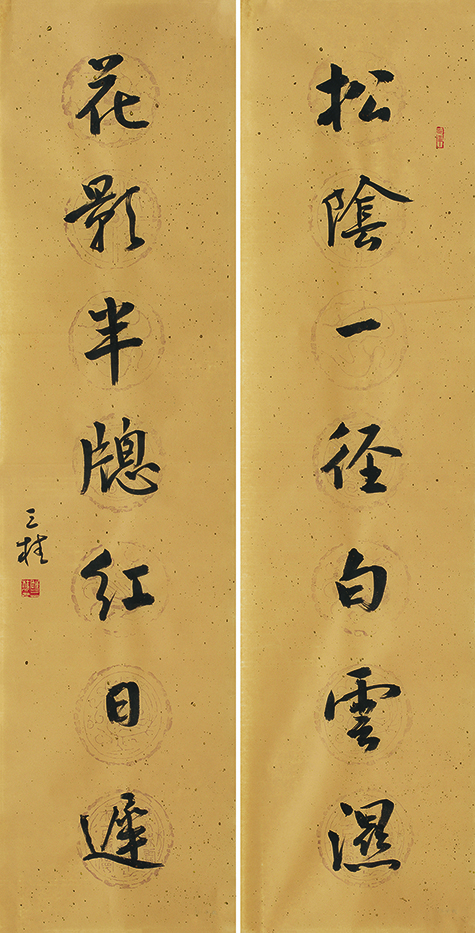 松陰一径白雲濕
花影半牕紅日遲
三桂